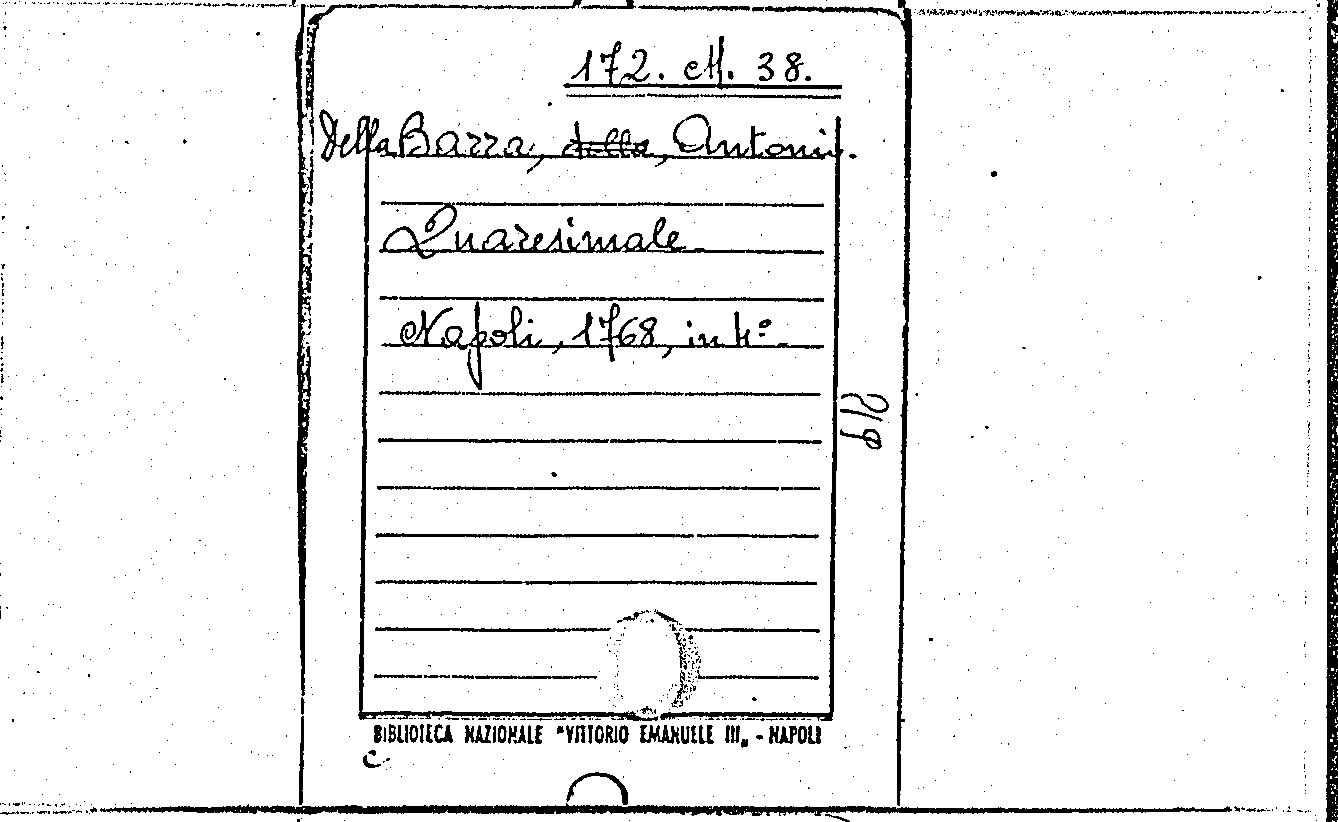 172. M. 38.
della Barra, della, Antonio.
Quaresimale
Napoli, 1768, in 4º.
BIBLIOTECA NAZIONALE "VITTORIO EMANUELE III„ - NAPOLI
C.